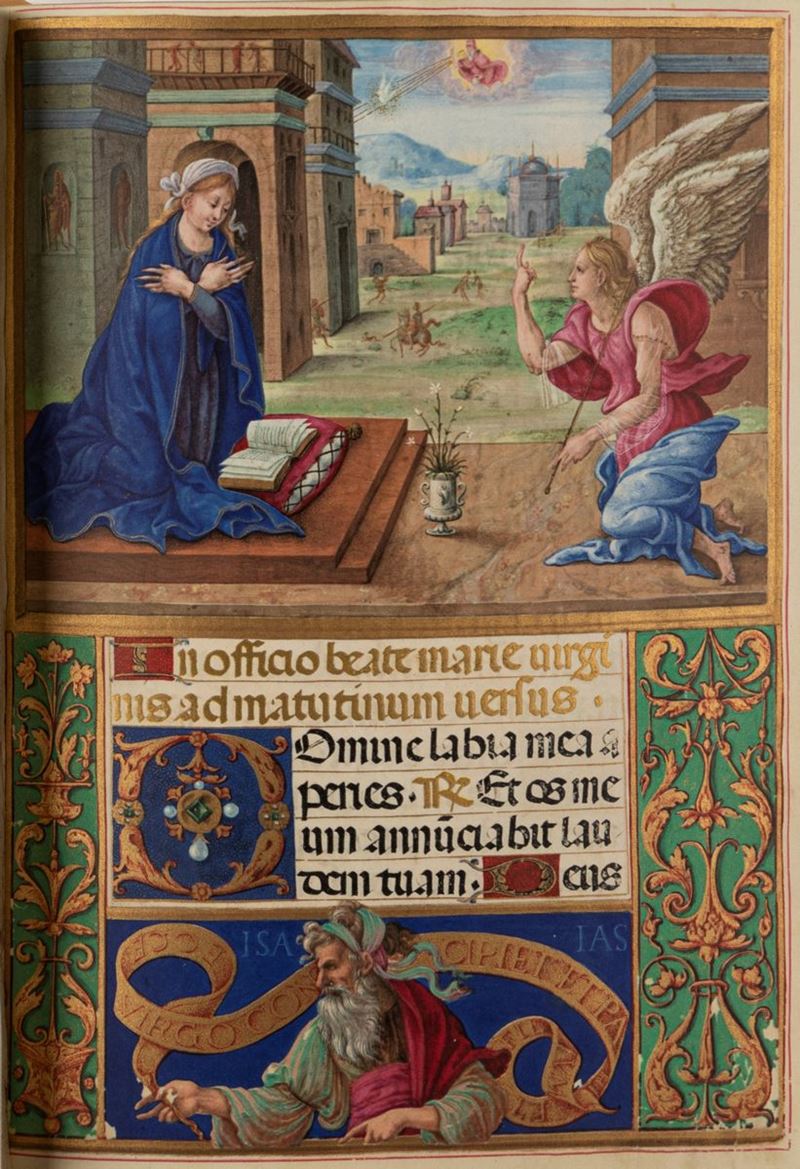 In officio beate marie uirgi
nis ad matutinum uersus ·
Domine labia mea a
peries · R Et os me
um annūciabit lau
dem tuam · Deus
ISA IAS
ECCE
VIRGO CON
CIPIET ET PA